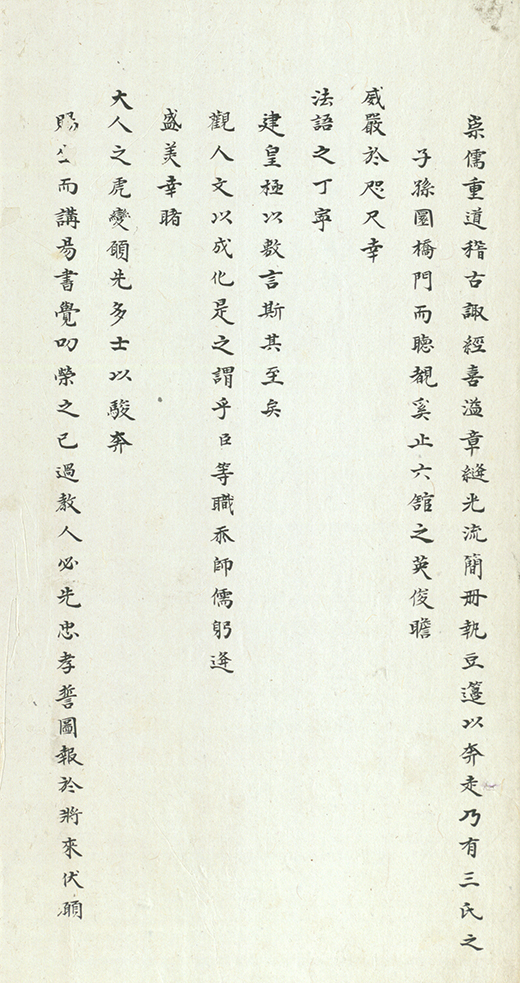 崇儒重道稽古諏經喜溢章縫光流簡冊執豆籩以奔走乃有三氏之
子孫圜橋門而聽覩奚止六館之英俊瞻
威嚴於咫尺幸
法語之丁寧
建皇極以敷言斯其至矣
觀人文以成化是之謂乎臣等職忝師儒躬逢
盛美幸睹
大人之虎變願先多士以駿奔
賜 而講易書覺叨榮之已過教人必先忠孝誓圖報於將來伏願